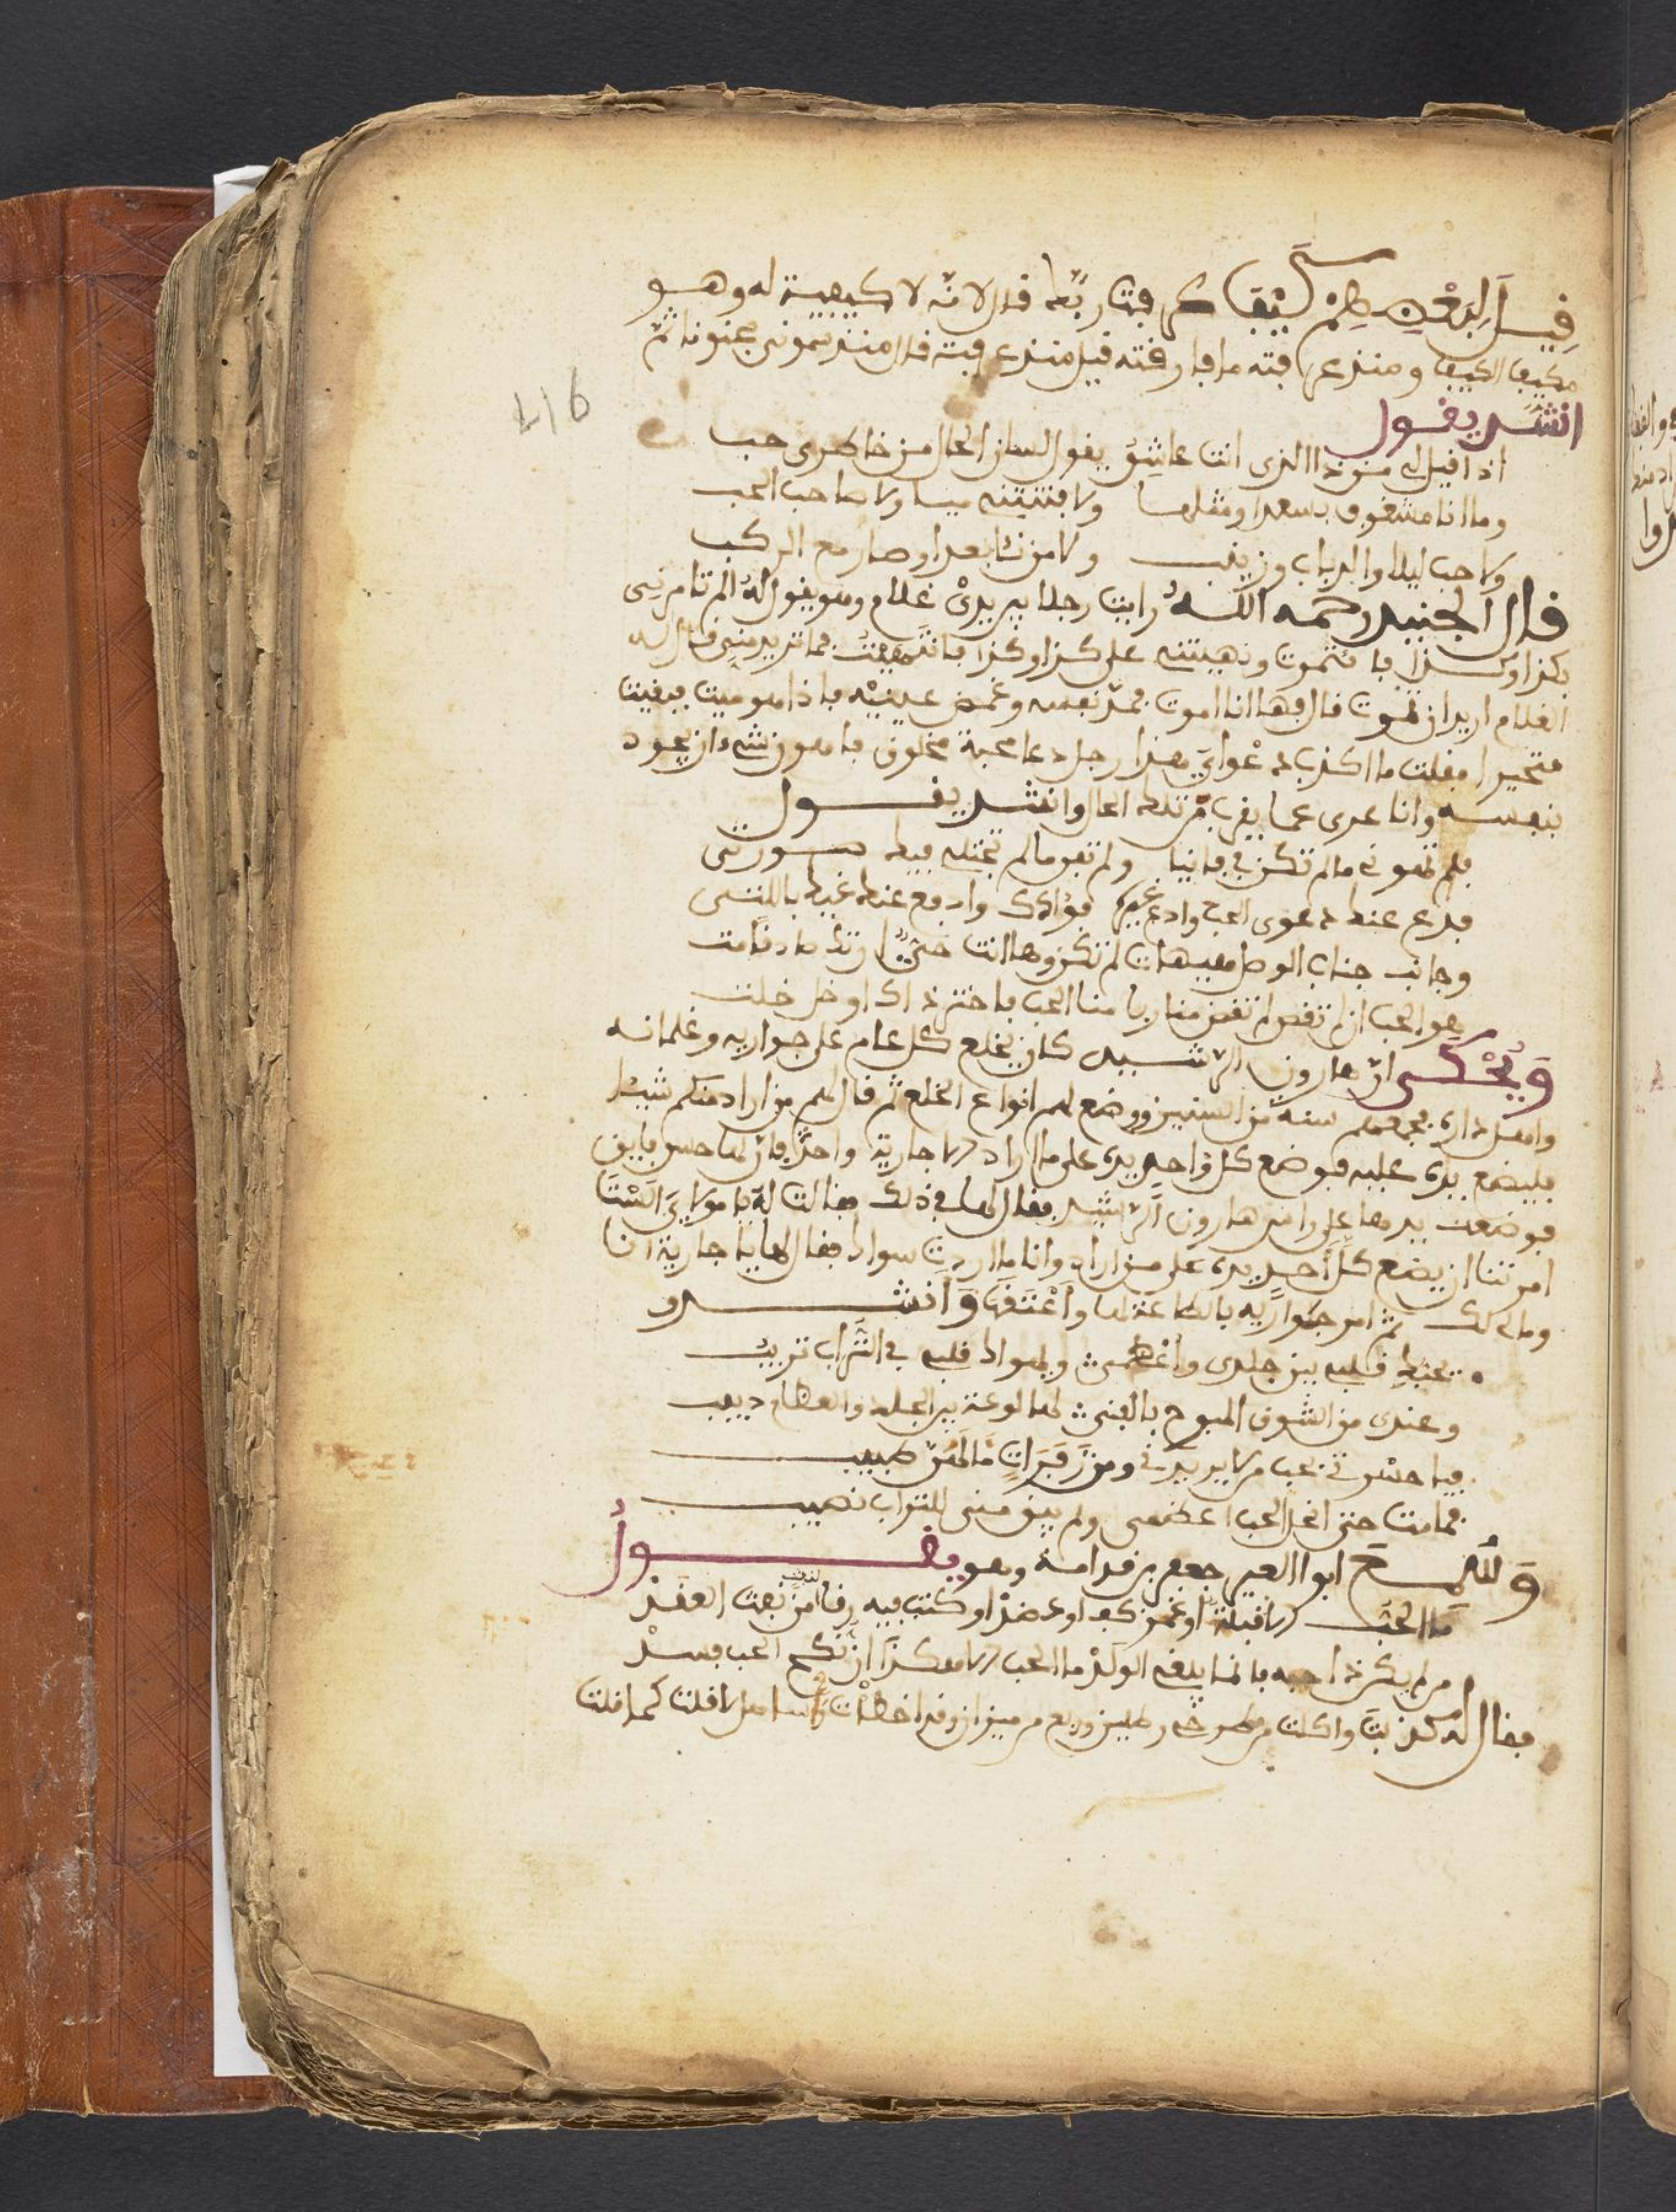 قيل لبعضهم كيف عرفت ربك قال لانه لا كيفية له وهو
مكيف الكيف ومنذ عرفته ما فارقته قيل منذ عرفته قال منذ سموني مجنونا ثم
416
انشد يقول
اذا قيل لي من ذا الذي انت عاشق يقول لسان الحال من خاطري حب
وما انا مشغوف بسعدا ومثلها ولا فتنتني ميا ولا صاحب الحب
ولا حب ليلا والرباب وزينب ولا من نئا بعدا وصار مع الركب
قال الجنيد رحمه الله رايت رجلا بين يدي غلام وهو يقول له الم تامرني
بكذا وكذا فائتمرت ونهيتني على كذا وكذا فانتهيت فما تريد مني قال له
الغلام اريد ان تموت قال فها انا اموت فمد نفسه وغمض عينيه فاذا هو ميت فبقيت
متحيرا فقلت ما اكذب دعواي هذا رجل دعا محبة مخلوق فاهون شيء ان يجود
بنفسه وانا عرى عما يقرب من تلك الحال وانشد يقول
فلم تهوني ما لم تكن في فانيا ولم تفن ما لم تجتلى فيك صورتي
فدع عنك دعوى الحب وادع لغيره فؤادك وادفع عنك غيك بالتي
وجانب جناب الوصل هيهات لم تكن وها انت حي ان تك صادقا مت
هو الحب ان لم تقض لم تقض مناربا منا الحب فاختر ذاك او خل خلت
ويحكى ان هارون الرشيد كان يخلع كل عام على جواريه وغلمانه
واهل داره فجمعهم سنة من السنين ووضع لهم انواع الخلع ثم قال لهم من اراد منكم شيئا
فليضع يده عليه فوضع كل واحد يده على ما اراد الا جارية واحدة كان لها حسن فايق
فوضعت يدها على راس هارون الرشيد فقال لها في ذلك فقالت له يا مولاي الست
امرتنا ان يضع كل احد يده على من اراد وانا ما اردت سواك فقال لها يا جارية انا
وما لي لك ثم امر جواريه بالطاعة لها واعتقها وانشدو
تحبك قلبي بين جلدي واعظمي ويهواك قلبي في التراب تريب
وعندي من الشوق المبرح بالفتى لها لوعة بين الجلد والعظام دبيب
فيا حسرتي بحب من لا يريدني ومن زفرات ما لهن طبيب
فما مت حتى انحل الحب اعظمي ولم يبق مني للتراب نصيب
ولله مدح ابوا العبر جعفر بن قدامة وهو يقول
ما الحب الا قبلة او غمز كف او عضد او كتب فيه رقا من نفث العقد
من لم يكن ذا حبه فانما يبغي الولد ما الحب الا هكذا ان نكح الحب فسد
فقال له كذبت واكلت من رطلين وربع من ميزان وقد اخطات هل لا قلت كما قلت